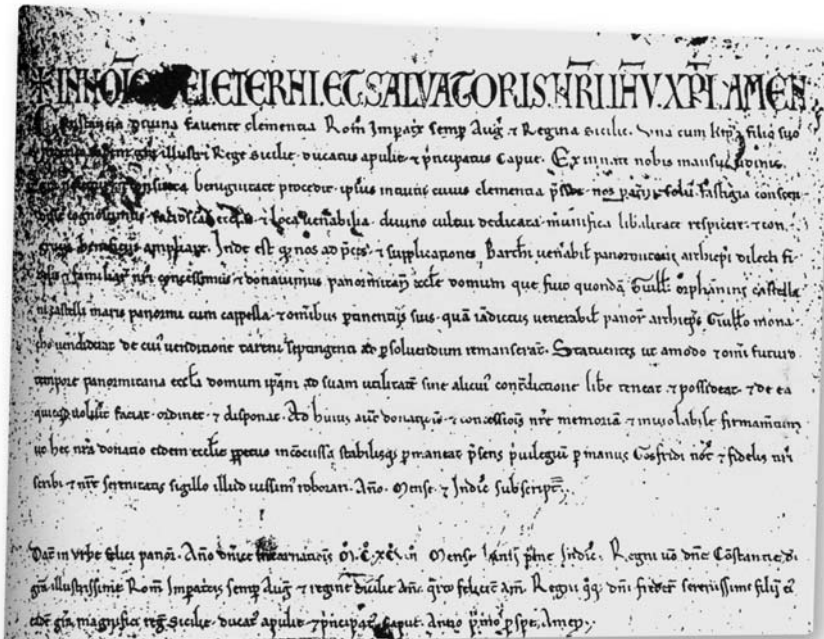 ✠ IN NOĪE DEI ETERNI. ET SALVATORIS. NR̄I IHV̄. XP̄I. AMEN
Constancia divina favente clementia Rom̄ Imp̄atix semp Auḡ. ⁊ Regina Sicilie. Una cum kr̄mo filio suo
illustri Rege Sicilie. ducatus apulie. ⁊ p̄ncipatus Capue. Ex innate nobis mansuetudinis
benignitate procedit. ipsius intuitu cuius clementia nos
cognoscimus. ⁊ loca ven̄abilia. divino cultui dedicata. munifica lib̄alitate respicere. ⁊ con
beneficiis ampliare. Inde est q̄ nos ad p̄ces. ⁊ supplicationes Barth̄i ven̄abil̄ panormitani archiep̄i dilecti fi
⁊ familiar̄ nr̄i concessimus ⁊ donavimus panormitan̄ eccl̄e domum que fuit quondā Guill̄i orphanini castella
castelli maris panormi cum cappella. ⁊ om̄ibus p̄tinentijs suis. quā iādictus venerabil̄ panor̄ archiep̄s Guill̄o mona
cho vendiderat de cui᾽ venditione tareni septingenti ad p̄solvendum remanserāt. Statuentes ut amodo ⁊ om̄i futuro
tempore panormitana eccl̄a domum ip̄am ad suam utilitatē sine alicui᾽ cont̄dictione lib̄e teneat ⁊ possideat. ⁊ de ea
quicq̄d voluit faciat. ordinet. ⁊ disponat. Ad huius aut̄ donat̄ōis. ⁊ concessiōis nr̄e memoriā ⁊ inviolabile firmam̄tum
ut hec nr̄a donatio eidem eccl̄ie p̄petuo incōcussa stabilisq̄ p̄maneat p̄sens p̄vilegiū p̄ manus Gosfridi not̄ ⁊ fidelis nr̄i
scribi ⁊ nr̄e serenitatis sigillo illud iussim᾽ roborari. Ān̄o. Mense. ⁊ Indic̄ subscript̄.
Dat̄ in urbe felici panor̄. Ān̄o dn̄ice incarnatiōis M̄. C̄. XC̄. V. Mense Ianī Indic̄. Regni v̄o dn̄e Cōstantie d̄i
gr̄a illustrissime Rom̄ Imp̄aticis semp Auḡ ⁊ regine Sicilie Ān̄o q̄rto felicit̄ Am̄. Regni q̄q̄ dn̄i Freder̄ serenissimi filij ei᾽
eadē gr̄a magnifici reḡ Sicilie. ducat̄ apulie ⁊ p̄ncipat̄ Capue. Anno p̄mo p̄spe, Amen.